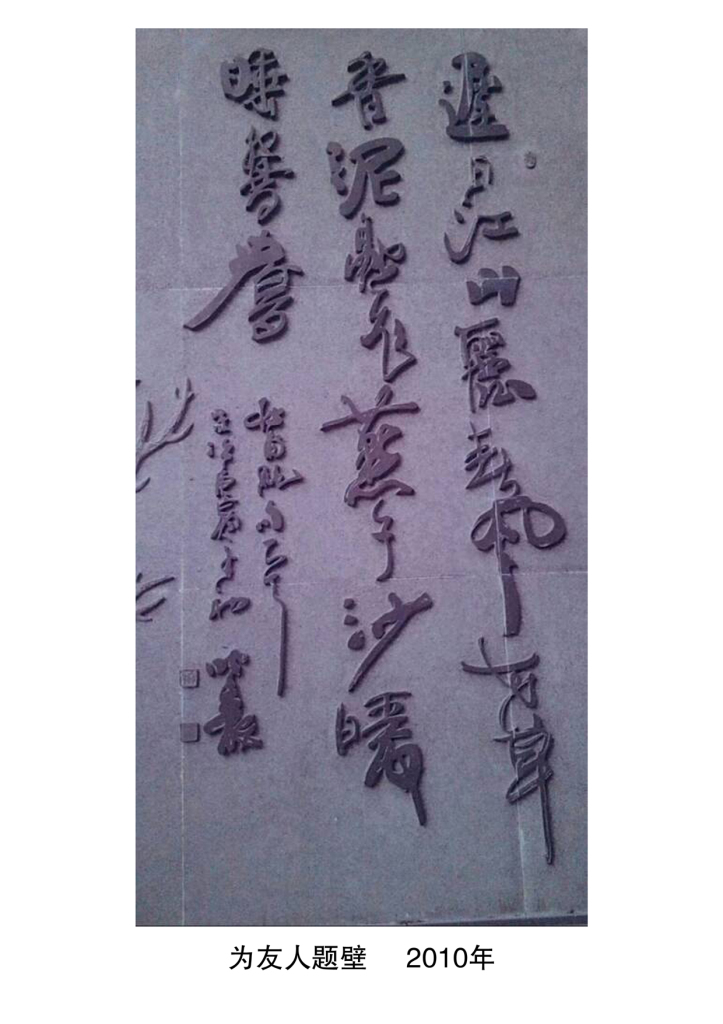 遲日江山麗春風花草
香泥融飛燕子沙暖
睡鴛鴦
杜甫
庚寅
为友人题壁 2010年